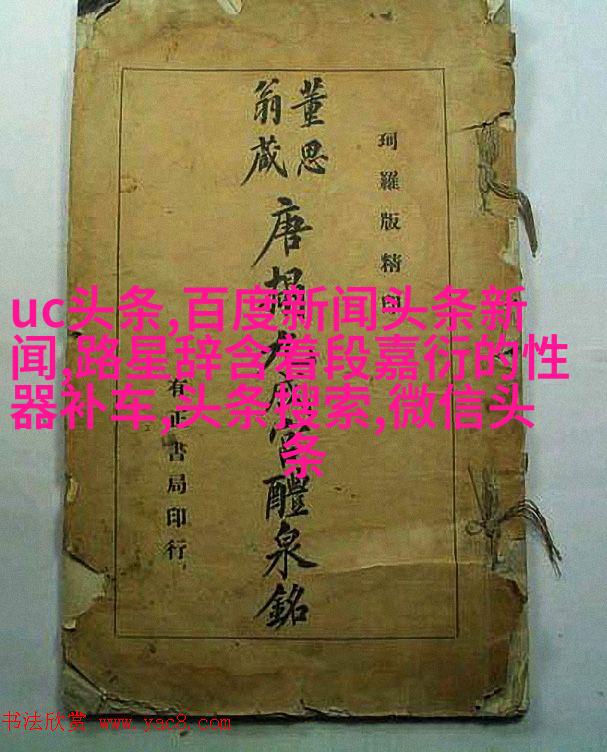 珂羅版精印
董思
翁藏
唐搨九成宮醴泉銘
有正書局印行
uc头条,百度新闻头条新
闻,路星辞含着段嘉衍的性
器补车,头条搜索,微信头
条
书法欣赏 www.yac8.com